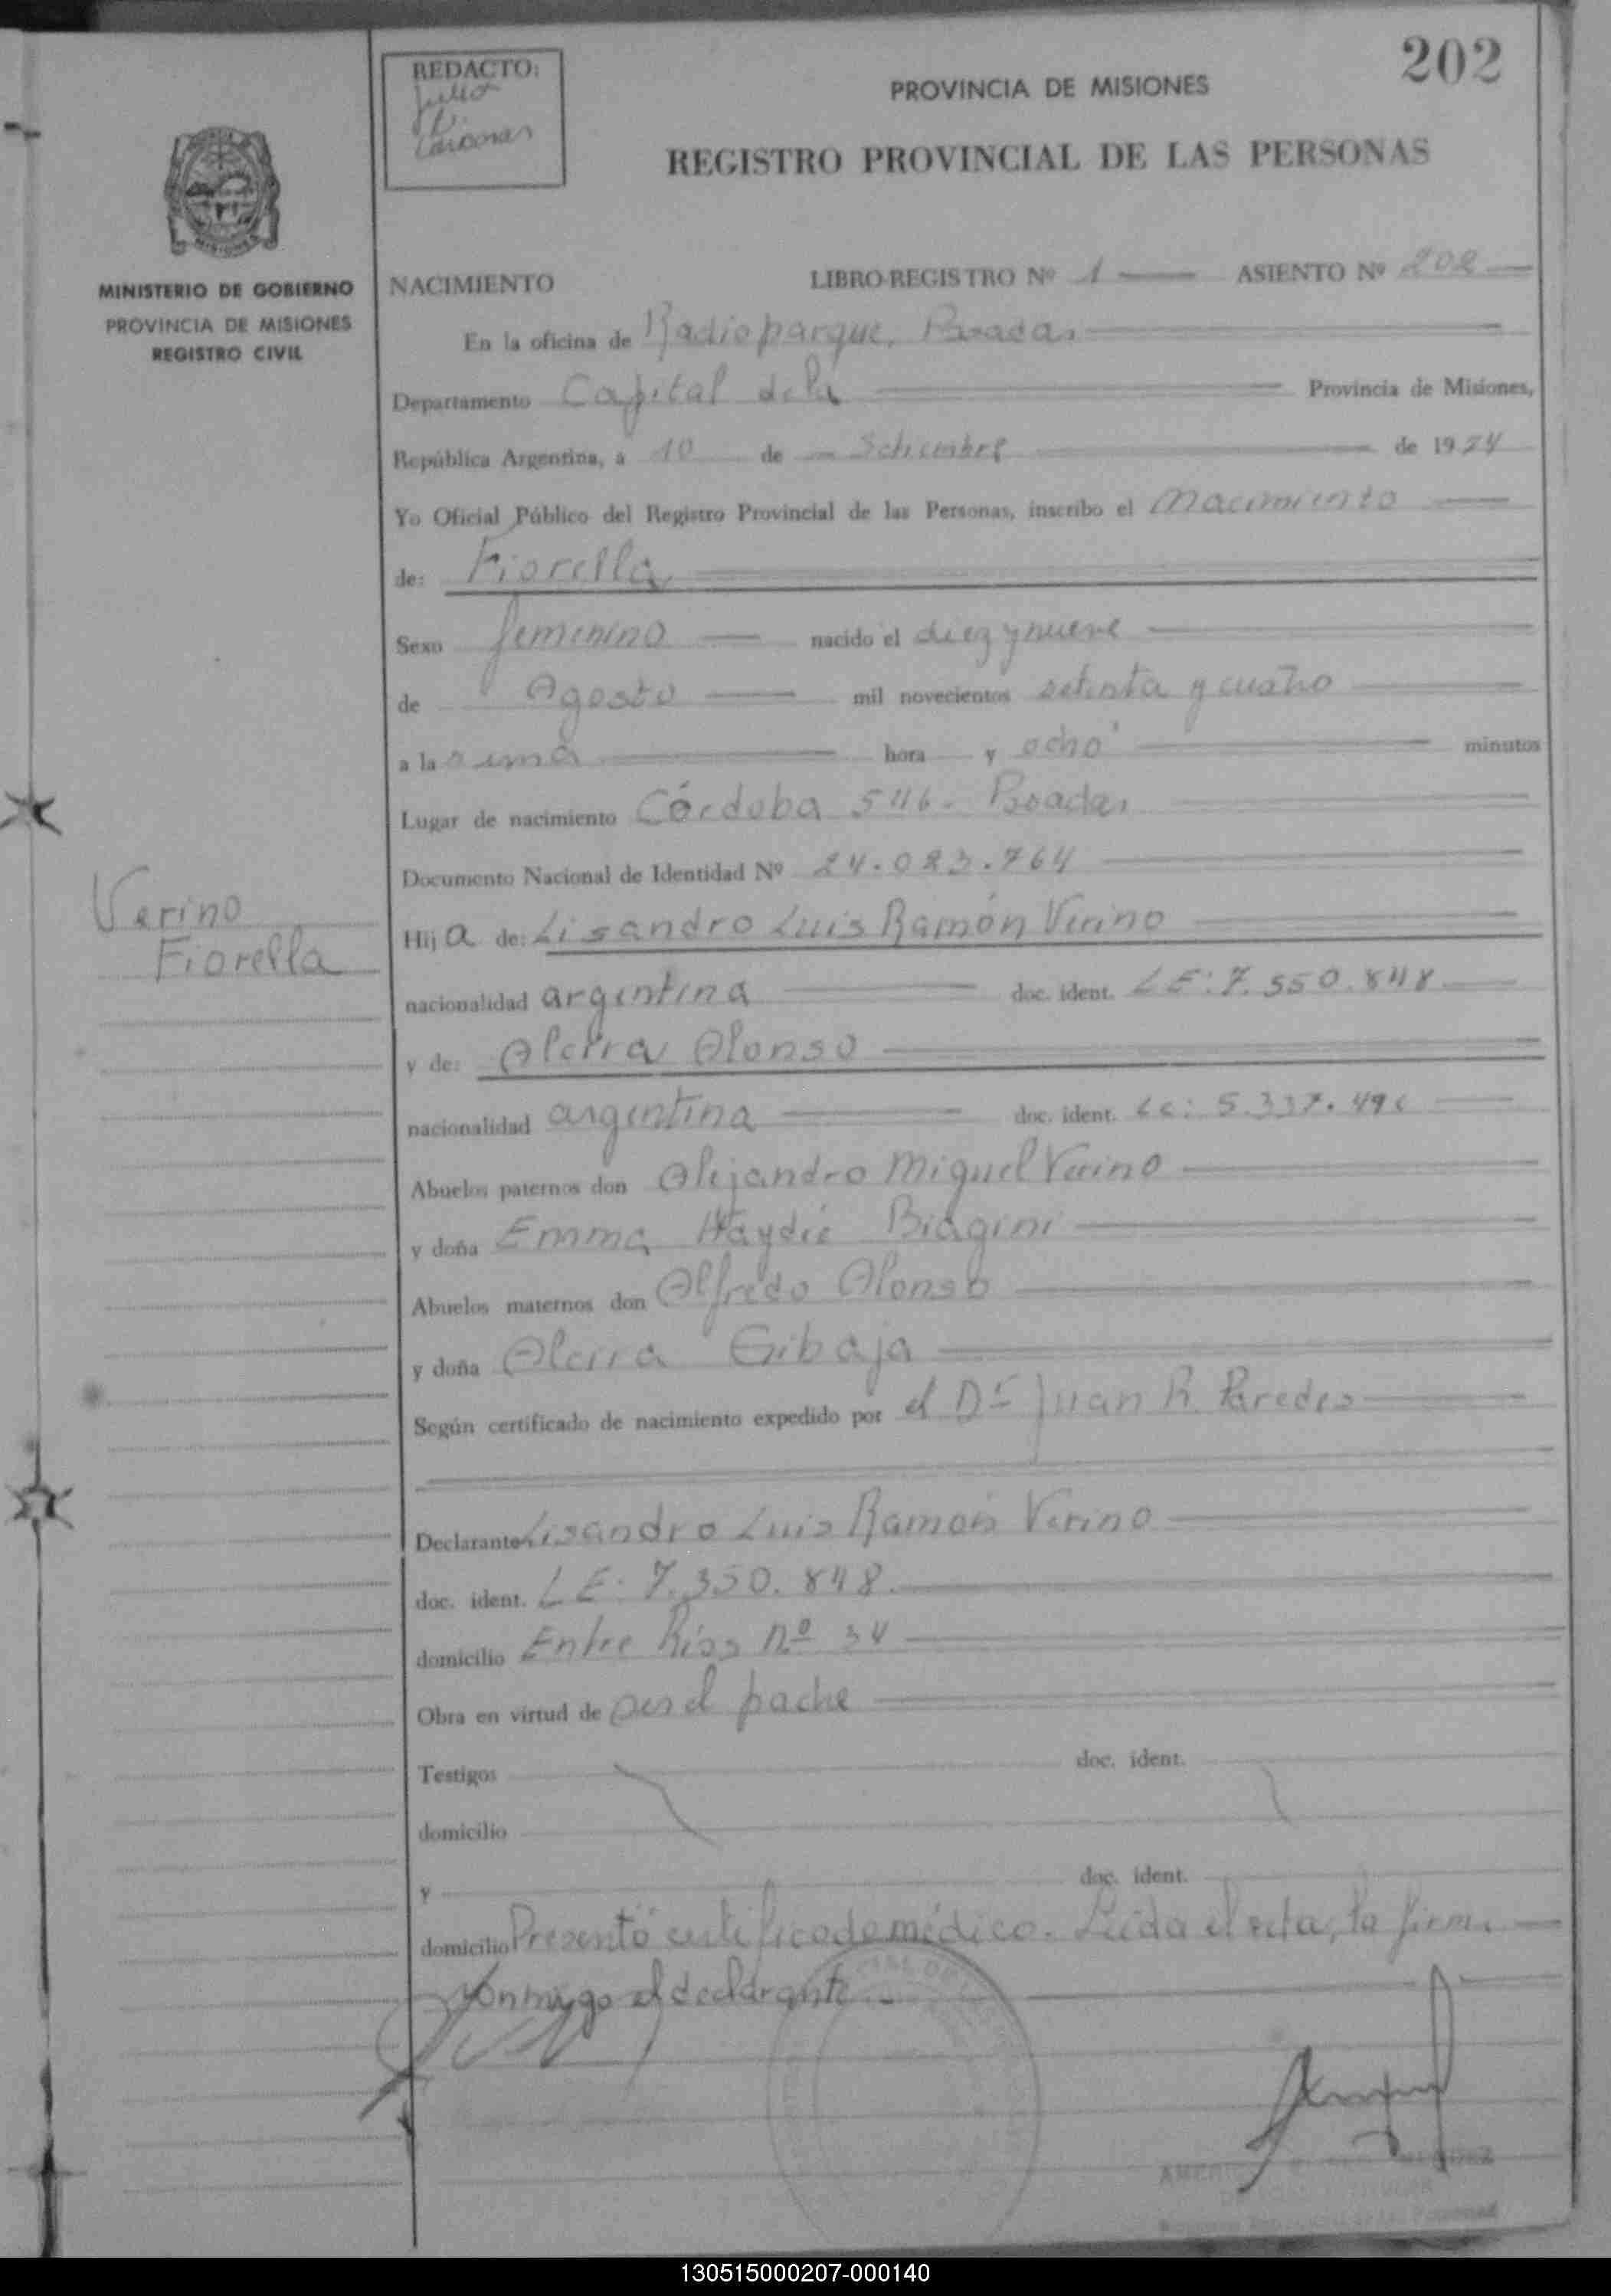 202
REDACTO:
Julio
D.
PROVINCIA DE MISIONES
REGISTRO PROVINCIAL DE LAS PERSONAS
MISIONES
MINISTERIO DE GOBIERNO
PROVINCIA DE MISIONES
REGISTRO CIVIL
NACIMIENTO LIBRO-REGISTRO Nº 1 ASIENTO Nº 202
En la oficina de Radioparque, Posadas
Departamento Capital de la Provincia de Misiones,
República Argentina, a 10 de Setiembre de 1974
Yo Oficial Público del Registro Provincial de las Personas, inscribo el Nacimiento
de: Fiorella
Sexo femenino nacido el diez y nueve
de Agosto mil novecientos setenta y cuatro
a la una hora y ocho minutos
Lugar de nacimiento Córdoba 546. Posadas
Documento Nacional de Identidad Nº 24.023.764
Verino
Fiorella
Hija de: Lisandro Luis Ramón Verino
nacionalidad argentina doc. ident. LE: 7.550.848
y de: Alcira Alonso
nacionalidad argentina doc. ident. LC: 5.337.496
Abuelos paternos don Alejandro Miguel Verino
y doña Emma Haydée Biagini
Abuelos maternos don Alfredo Alonso
y doña Alcira Gibaja
Según certificado de nacimiento expedido por el Dr Juan R. Paredes
Declarante Lisandro Luis Ramón Verino
doc. ident. LE: 7.550.848.
domicilio Entre Ríos Nº 34
Obra en virtud de ser el padre
Testigos doc. ident.
domicilio
y doc. ident.
domicilio Presentó certificado médico. Leída el acta, la firma
conmigo el declarante.
130515000207-000140